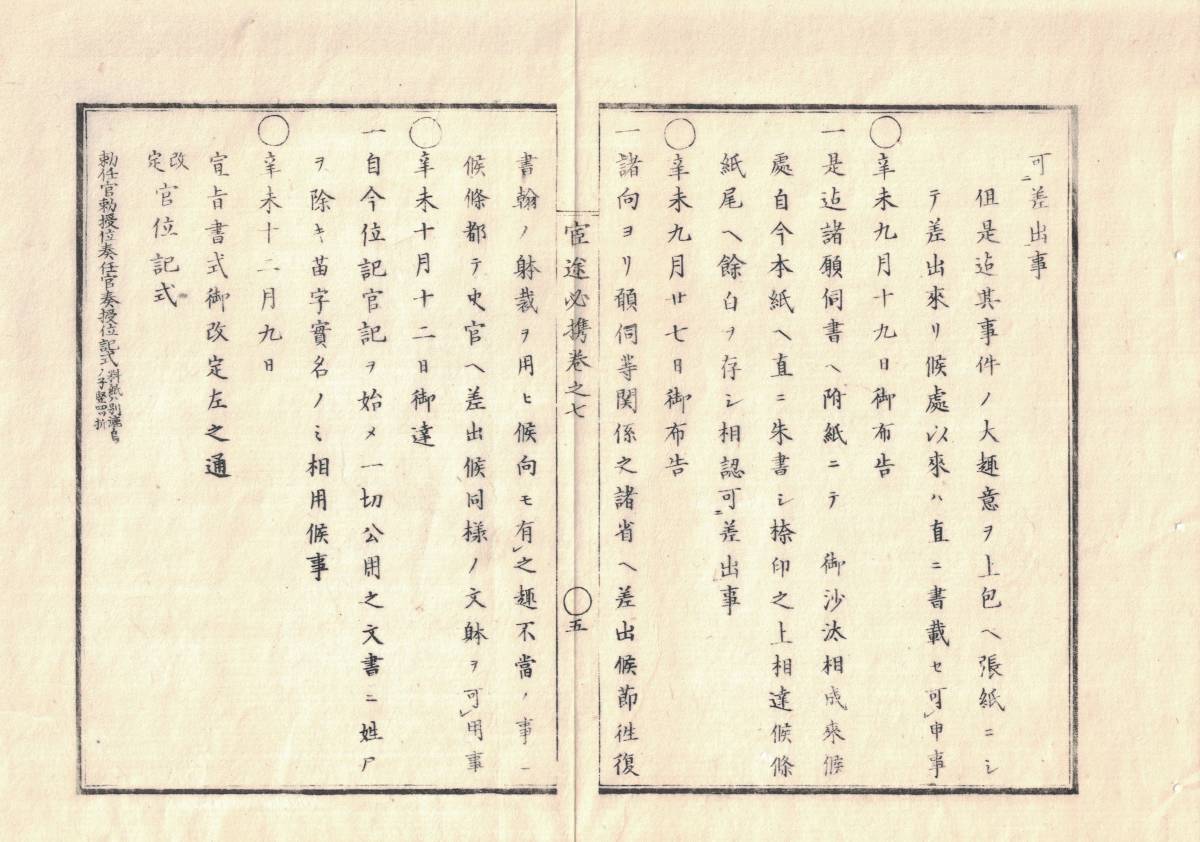 可ニ差出一事
但是迠其事件ノ大趣意ヲ上包ヘ張紙ニシ
テ差出來リ候處以來ハ直ニ書載セ可レ申事
◯辛未九月十九日御布告
一是迠諸願伺書ヘ附紙ニテ 御沙汰相成來候
處自今本紙ヘ直ニ朱書シ捺印之上相達候條
紙尾ヘ餘白ヲ存シ相認可ニ差出事
◯辛未九月廿七日御布告
一諸向ヨリ願伺等関係之諸省ヘ差出候節徃復
宦途必携巻之七
◯五
書翰ノ躰裁ヲ用ヒ候向モ有レ之趣不當ノ事ニ
候條都テ史官ヘ差出候同様ノ文躰ヲ可レ用事
◯辛未十月十二日御達
一自今位記官記ヲ始メ一切公用之文書ニ姓尸
ヲ除キ苗字實名ノミ相用候事
◯辛未十二月九日
宣旨書式御改定左之通
改定官位記式
勅任官勅授位奏任官奏授位記式